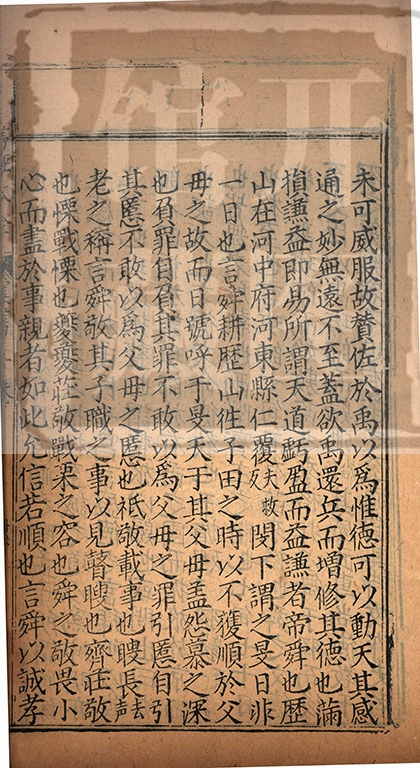 未可威服故賛佐於禹以爲惟德可以動天其感
通之妙無遠不至蓋欲禹還兵而增修其德也滿
損謙益即易所謂天道虧盈而益謙者帝舜也歷
山在河中府河東縣仁覆夫救反閔下謂之旻日非
一日也言舜耕歷山徃于田之時以不獲順於父
母之故而日號呼于旻天于其父母盖怨慕之深
也負罪自負其罪不敢以爲父母之罪引慝自引
其慝不敢以爲父母之慝也祗敬載事也瞍長去聲
老之稱言舜敬其子職之事以見瞽瞍也齊莊敬
也慄戰慄也夔夔莊敬戰栗之容也舜之敬畏小
心而盡於事親者如此允信若順也言舜以誠孝